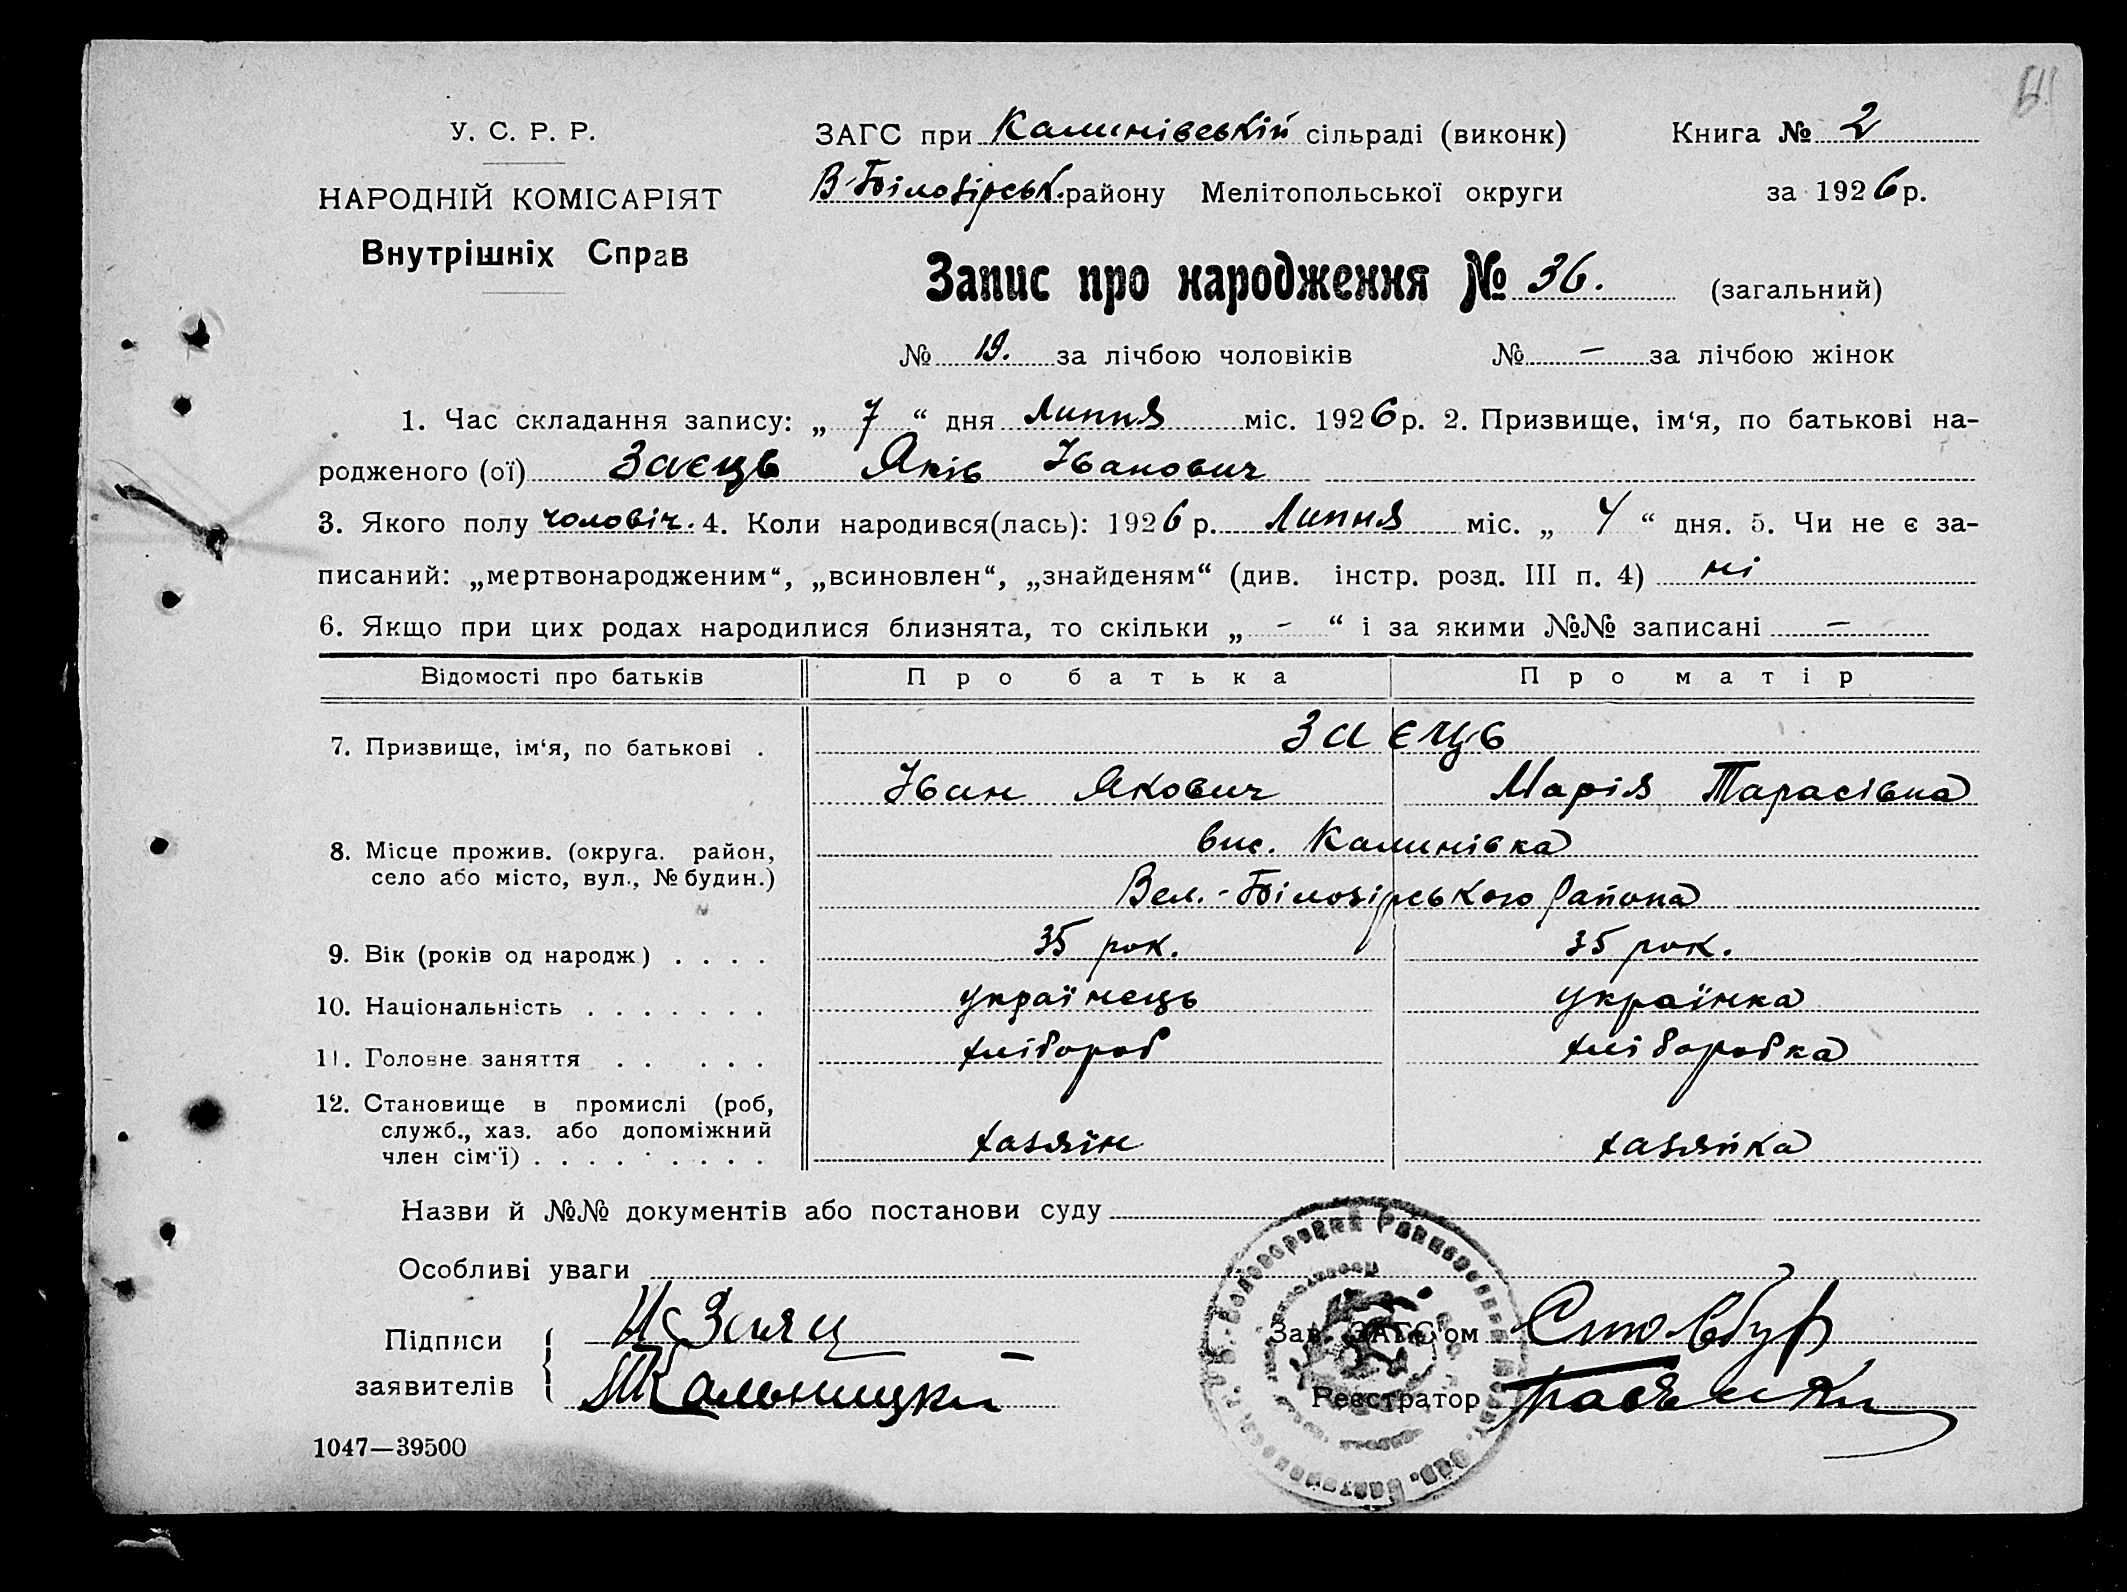 У. С. Р. Р.
НАРОДНІЙ КОМІСАРІЯТ
Внутрішніх Справ
ЗАГС при Калинівській сільраді (виконк) Книга № 2
В-Білозірськ. району Мелітопольської округи за 1926 р.
Запис про народження № 36. (загальний)
№ 19. за лічбою чоловіків № – за лічбою жінок
1. Час складання запису: „ 7 “ дня Липня міс. 1926 р. 2. Призвище, ім‘я, по батькові на-
родженого (ої) Заєць Яків Іванович
3. Якого полу чоловіч. 4. Коли народився(лась): 1926 р. Липня міс. „ 4 “ дня. 5. Чи не є за-
писаний: „мертвонародженим“, „всиновлен“, „знайденям“ (див. інстр. розд. III п. 4) ні
6. Якщо при цих родах народилися близнята, то скільки „ - “ і за якими №№ записані –
Відомості про батьків Про батька Про матір
7. Призвище, ім‘я, по батькові . Заєць
Іван Якович Марія Тарасівна
8. Місце прожив. (округа. район, вис. Калинівка
село або місто, вул., № будин.) Вел.-Білозірського района
9. Вік (років од народж.) . . . . 35 рок. 35 рок.
10. Національність . . . . . . . українець українка
11. Головне заняття . . . . . хлібороб хліборобка
12. Становище в промислі (роб,
служб., хаз. або допоміжний
член сім‘ї) . . . . . . . . . хазяїн хазяйка
Назви й №№ документів або постанови суду
Особливі уваги
Підписи
заявителів
И Заяц
Зав. ЗАГС‘ом Стовбур
Реєстратор
1047—39500